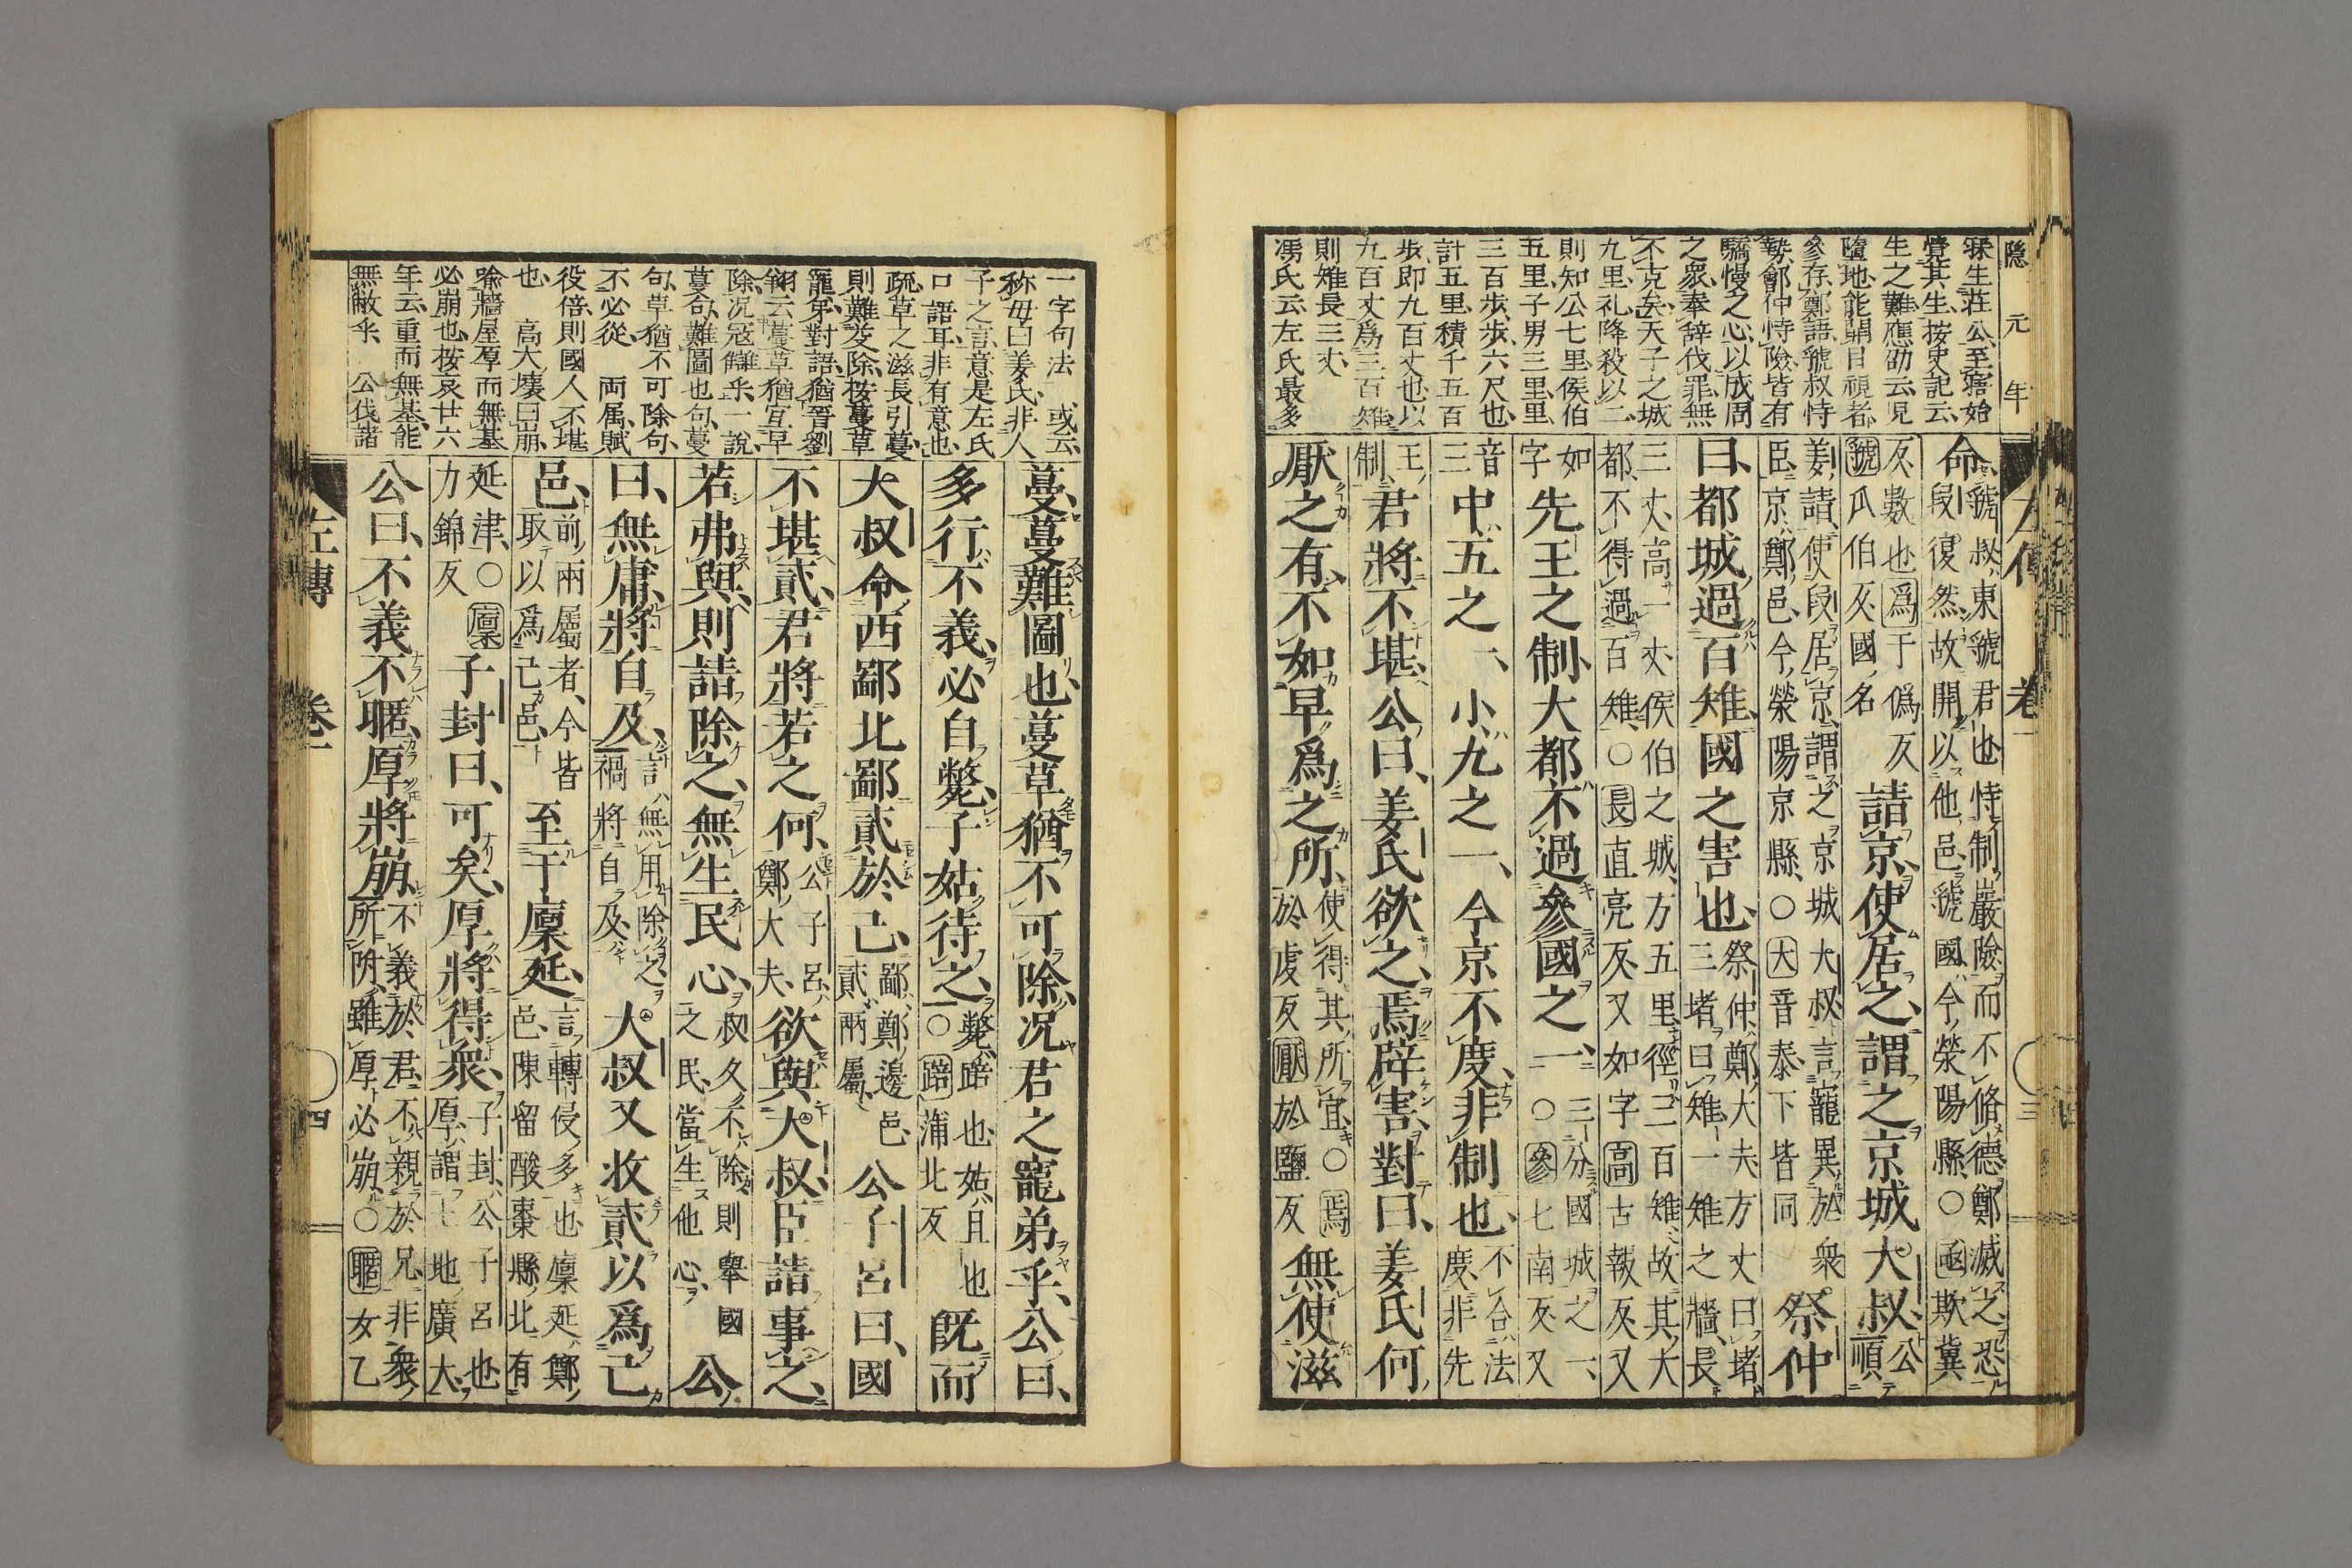 隱元年
寐生莊公至寤始
覺其生按史記云
生之難應劭云兒
墮地能開目視者
參存鄭語虢叔恃
勢鄶仲恃險皆有
驕慢之心以成周
之衆奉辞伐罪無
不克矣天子之城
九里礼降殺以二
則知公七里侯伯
五里子男三里里
三百歩歩六尺也
計五里積千五百
歩即九百丈也以
九百丈爲三百雉
則雉長三丈
馮氏云左氏最多
命虢叔東虢君也恃制巖險而不脩德鄭滅之恐段復然故開以他邑虢國今滎陽縣○亟欺冀
反數也爲于僞反虢瓜伯反國名請京使居之謂之京城大叔公順
姜請使段居京謂之京城大叔言寵異於衆臣京鄭邑今滎陽京縣○大音泰下皆同祭仲
曰都城過百雉國之害也祭仲鄭大夫方丈曰堵三堵曰雉一雉之牆長
三丈高一丈侯伯之城方五里徑三百雉故其大都不得過百雉○長直亮反又如字高古報反又
如字先王之制大都不過參國之一三分國城之一○參七南反又
音三中五之一小九之一今京不度非制也不合法度非先
王制君將不堪公曰姜氏欲之焉辟害對曰姜氏何
厭之有不如早爲之所使得其所宜○焉於虔反厭於鹽反無使滋
一字句法 或云
称母曰姜氏非人
子之言意是左氏
口語耳非有意也
疏草之滋長引蔓
則難芟除按蔓草
寵弟對語猶晋劉
翎云蔓草猶宜早
除况寇讎乎一說
蔓句難圖也句蔓
句草猶不可除句
不必從 両属賦
役倍則國人不堪
也 高大壊曰崩
喩牆屋厚而無基
必崩也按哀廿六
年云重而無基能
無敝乎 公伐諸
蔓蔓難圖也蔓草猶不可除况君之寵弟乎公曰
多行不義必自斃子姑待之斃踣也姑且也○踣蒲北反既而
大叔命西鄙北鄙貳於己鄙鄭邊邑貳兩屬公子呂曰國
不堪貳君將若之何公子呂鄭大夫欲與大叔臣請事之
若弗與則請除之無生民心叔久不除則舉國之民當生他心公
曰無庸將自及言無用除之禍將自及大叔又收貳以爲己
邑前兩屬者今皆取以爲己邑至于廩延言轉侵多也廩延鄭邑陳留酸棗縣北有
延津○廩力錦反子封曰可矣厚將得衆子封公子呂也厚謂土地廣大
公曰不義不暱厚將崩不義於君不親於兄非衆所附雖厚必崩○暱女乙
左傳 卷一 四